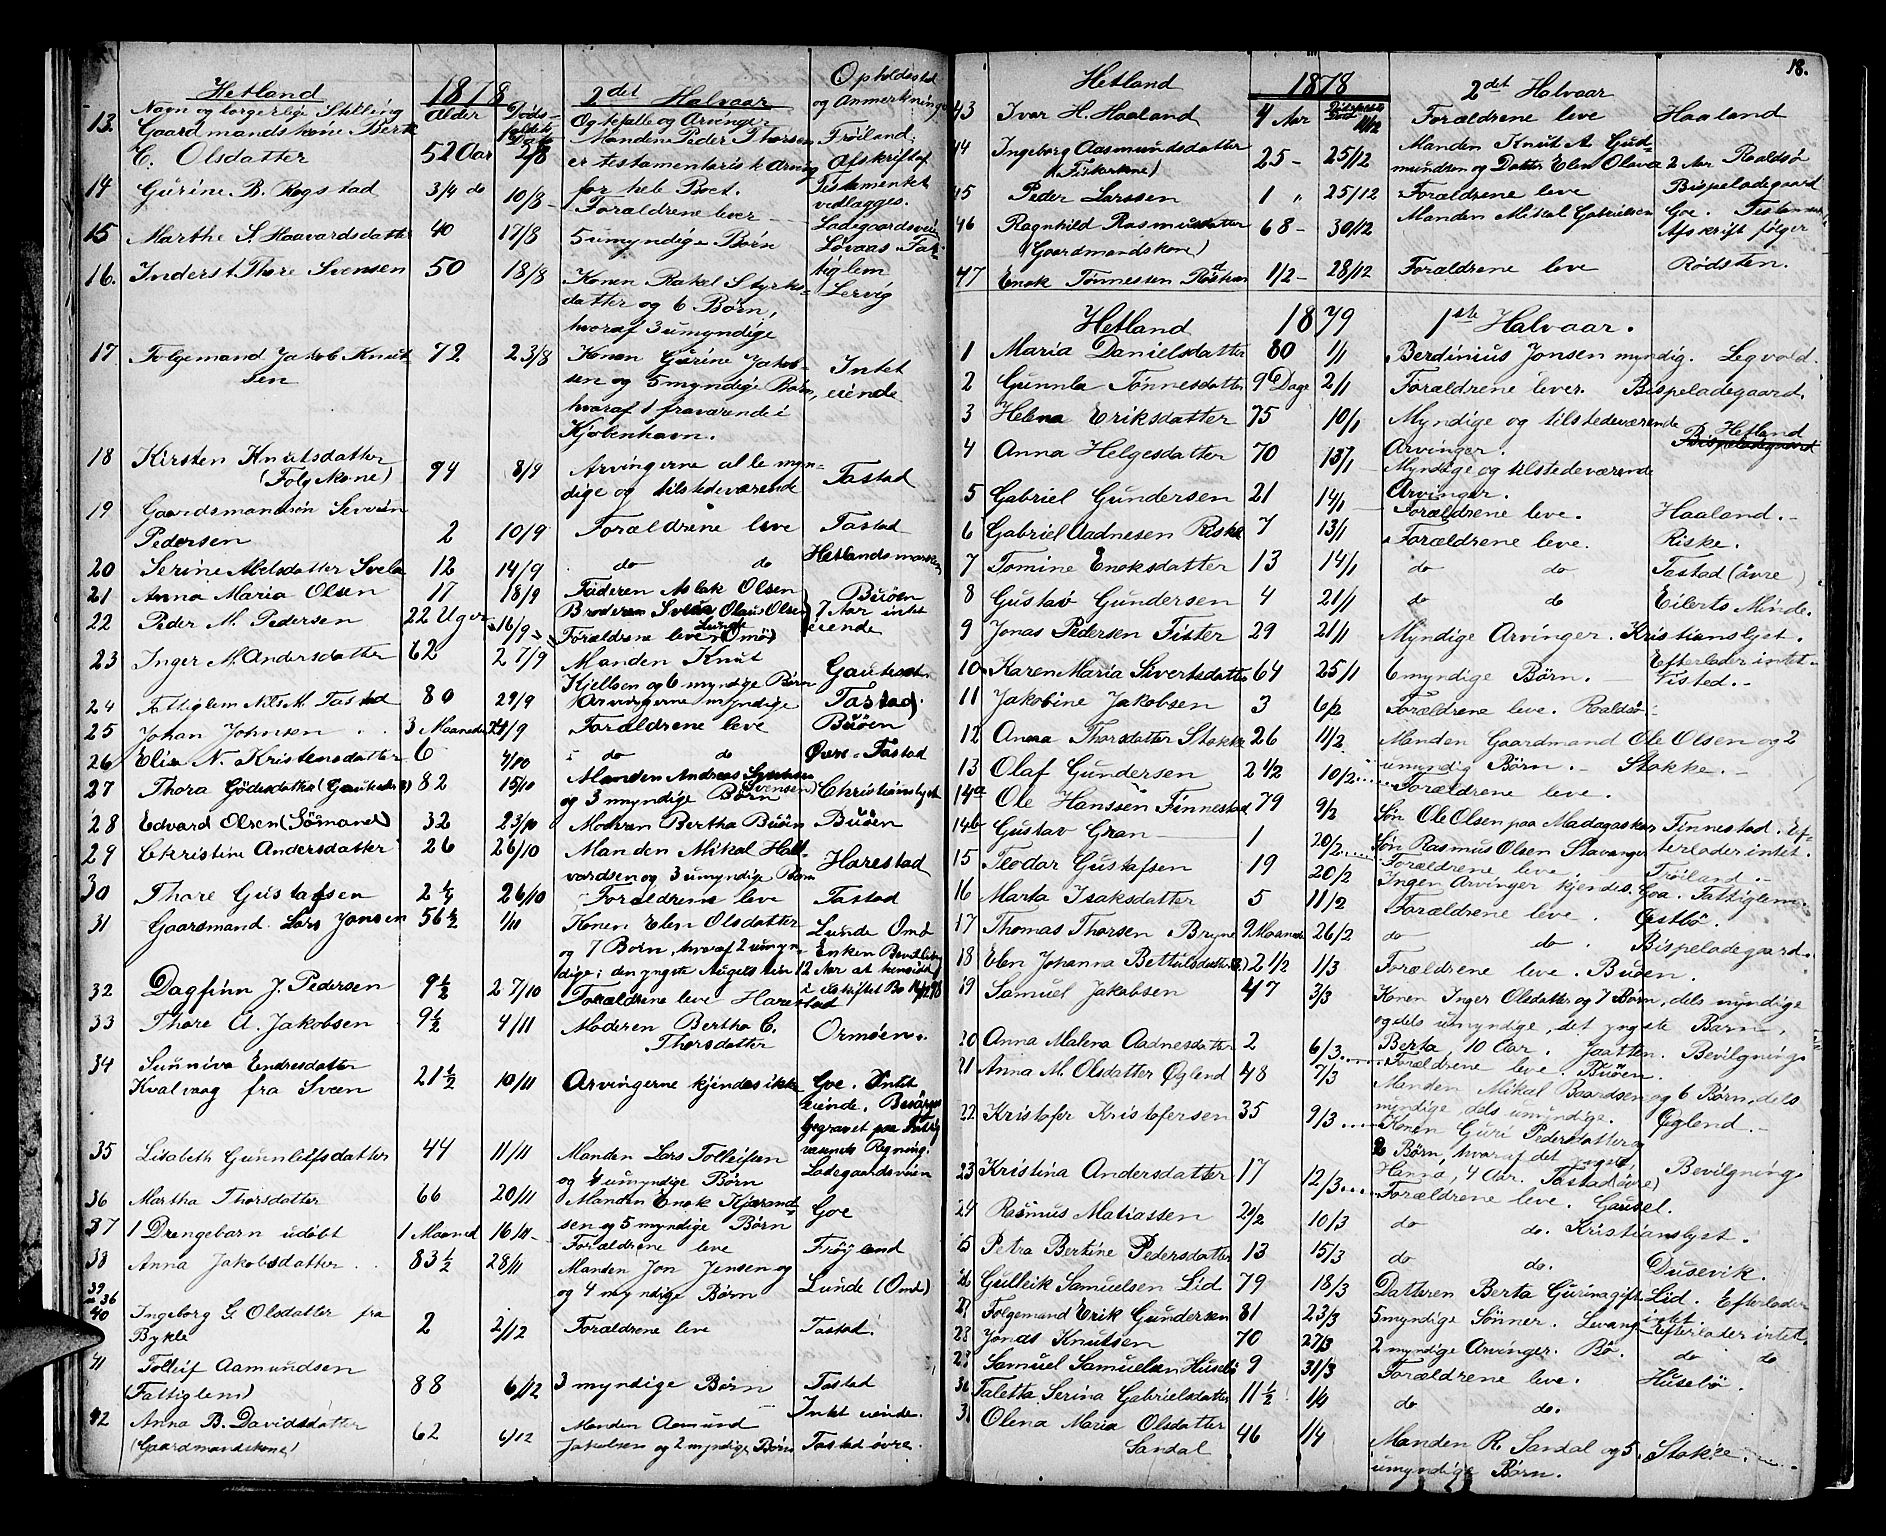 Hetland 1878 2det Halvaar Opholdssted
Navn og borgerlige Stilling Alder Dödsfaldets Dato Ægtefælle og Arvinger og Anmerkninger
13. Gaardmandskone Berte C. Olsdatter 52 Aar 2/8 Manden Peder Thorsen er testamentarisk Arving for hele Boet. Fröiland. Afskrift af Testamentet vedlægges.
14 Gurine B. Rogstad 3/4 do 10/8 Forældrene lever Ladegaardsveien
15 Marthe S. Haavardsdatter 40 17/8 5 umyndige Börn Lövaas
16. Inderst Thore Svensen 50 18/8 Konen Rakel Styrksdatter og 6 Börn, hvoraf 3 umyndige Lervig
17 Folgemand Jakob Knutsen 72 23/8 Konen Gurine Jakobsen og 5 myndige Börn, hvoraf 1 fraværende i Kjöbenhavn. Intet eiende
18 Kirsten Knutsdatter (Folgekone) 94 8/9 Arvingerne alle myndige og tilstedeværende Tastad
19 Gaardmandssön Pedersen 2 10/9 Forældrene leve Tastad
20 Serine Melsdatter 12 14/9 do do Hetlandsmarken
21 Anna Maria Olsen 17 18/9 Faderen Aslak Olsen Buöen
22 Peder M. Pedersen 22 Uger 16/9 Forældrene leve Lunde Omö
23 Inger M. Andersdatter 62 27/9 Manden Knut Kjellsen og 6 myndige Börn
24 Fattiglem Nils M. Tastad 80 29/9 Arvingerne myndige Tastad
25 Johan Johnsen 3 Maaneder /9 Forældrene leve Buöen
26 N. Kristensdatter 6 4/10 do do Övre Tastad
27 Thora Gödesdatter 82 15/10 Manden Andreas og 3 myndige Börn Christianslyst
28 Edvard Olsen (Sömand) 32 23/10 Moderen Bertha Buöen Buöen
29 Christine Andersdatter 26 26/10 Manden Mikal Hallvardsen og 3 umyndige Börn Harestad
30 Thore Gustafsen 2 1/4 26/10 Forældrene leve Tastad
31 Gaardmand Lars Jonsen 56 1/2 1/11 Konen Elen Olsdatter og 7 Börn, hvoraf 2 umyndige; den yngste 12 Aar Lunde Omö Enken
32 Dagfinn J. Pedersen 9 1/2 27/10 Forældrene leve Harestad
33 Thore A. Jakobsen 9 1/2 4/11 Moderen Bertha C. Thorsdatter Ormöen
34 Sunniva Endresdatter Kvalvaag fra Sveen 21 1/2 10/11 Arvingerne kjendes ikke Goe. Intet eiende. Begravet paa Fattigvæsenets Regning.
35 Lisabeth Gunnleifsdatter 44 11/11 Manden Lars Tolleifsen og 4 umyndige Börn Ladegaardsveien
36 Martha Thorsdatter 66 20/11 Manden Enok og 5 myndige Börn Goe
37 1 Drengebarn udöbt 1 Maaned 16/11 Forældrene leve Fröyland
38 Anna Jakobsdatter 83 1/2 28/11 Manden Jon Jensen og 4 myndige Börn Lunde (Omö)
39 = 36
40 Ingeborg G. Olsdatter fra Bykle 2 2/12 Forældrene leve Tastad.
41 Tolleif Aamundsen (Fattiglem) 88 6/12 3 myndige Börn Tastad Intet eiende.
42 Anna B. Davidsdatter (Gaardmandskone) 62 6/12 Manden Aamund Jakobsen og 2 myndige Börn Tastad övre.
18.
Hetland 1878 2det Halvaar
43 Ivar H. Haaland 4 Aar 11/12 Forældrene leve Haaland
44 Ingeborg Aasmundsdatter (Fiskerkone) 25 25/12 Manden Knut A. Gudmundsen og Datter Elen Oliva 2 Aar Roaldsö
45 Peder Larssen 1 " 25/12 Forældrene leve Bispeladegaard
46 Ragnhild Rasmusdatter (Gaardmandskone) 68 30/12 Manden Mikal Gabrielsen Goe. Afskrift fölger
47 Enok Tönnessen 1/2 28/12 Forældrene leve Rödsten.
Hetland 1879 1ste Halvaar.
1 Maria Danielsdatter 80 1/1 Berdinius Jonsen myndig. Legvold.
2 Gunnla Tönnesdatter 9 Dage 2/1 Forældrene lever. Bispeladegaard.
3 Helena Eriksdatter 75 10/1 Myndige og tilstedeværende Arvinger. Hetland
4 Anna Helgesdatter 70 13/1 Myndige og tilstedeværende Arvinger.
5 Gabriel Gundersen 21 14/1 Forældrene leve. Haaland.
6 Gabriel Aadnesen Riske 7 13/1 Forældrene leve. Riske.
7 Tomine Enoksdatter 13 14/1 do do Tastad (övre)
8 Gustav Gundersen 4 21/1 do do Eilerts Minde.
9 Jonas Pedersen Fister 29 21/1 Myndige Arvinger. Kristianslyst. Efterlader intet.
10 Karen Maria Sivertsdatter 64 25/1 6 myndige Börn. Visted.
11 Jakobine Jakobsen 3 6/2 Forældrene leve. Roaldsö
12 Anna Thorsdatter Stokke 26 11/2 Manden Gaardmand Ole Olsen og 2 umyndig Börn. Stokke.
13 Olaf Gundersen 2 1/2 10/2 Forældrene leve.
14a Ole Hanssen Finnestad 79 9/2 Sön Ole Olsen paa Madagaskar Finnestad. Efterlader intet. Sön Rasmus Olsen Stavanger
14b Gustav Gran 1 20/2 Forældrene leve. Fröiland.
15 Teodor Gustafsen 19 20/2 Ingen Arvinger kjendes. Goa. Fattiglem.
16 Marta Isaksdatter 5 11/2 Forældrene leve. Östbö.
17 Thomas Thorsen Bryne 9 Maaneder 26/2 do do. Bispeladegaard.
18 Elen Johanna 2 1/2 1/3 Forældrene leve. Buöen.
19 Samuel Jakobsen 47 3/3 Konen Inger Olsdatter og 7 Börn, dels myndige og dels umyndige, det yngste Barn, Berta, 10 Aar. Jaatten. Bevilgning
20 Anna Malena Aadnesdatter 2 6/3 Forældrene leve. Buöen.
21 Anna M. Olsdatter Öglend 48 7/3 Manden Mikael Baardsen og 6 Börn, dels myndige dels umyndige. Öglend.
22 Kristofer Kristofersen 35 9/3 Konen Guri Pedersdatter og 2 Börn, hvoraf det yngste, Hanna, 4 Aar. Tastad (övre) Bevilgning
23 Kristina Andersdatter 17 12/3 Forældrene leve. Gausel.
24 Rasmus Matiassen 2 1/2 10/3 do do. Kristianslyst.
25 Petra Bertine Pedersdatter 13 15/3 do do. Dusevik.
26 Gulleik Samuelsen Lid 79 18/3 Datteren Berta Gurina gift Lid. Efterlader intet.
27 Folgemand Erik Gundersen 81 23/3 5 myndige Sönner. Levang Efterlader intet.
28 Jonas Knutsen 70 27/3 2 myndige Arvinger. Bö. do do
29 Samuel Samuelsen Husebö 9 31/3 Forældrene leve. Husebö.
30 Taletta Serina Gabrielsdatter 11 1/2 1/4 do do.
31 Olena Maria Olsdatter Sandal 46 1/4 Manden R. Sandal og 5 umyndige Börn. Stokke